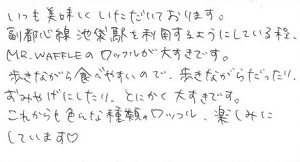 いつも美味しくいただいております。
副都心線池袋駅を利用するようにしている程、
MR.WAFFLEのワッフルが大すきです。
歩きながら食べやすいので、歩きながらだったり、
おみやげにしたり、とにかく大すきです。
これからも色んな種類のワッフル、楽しみに
しています♡